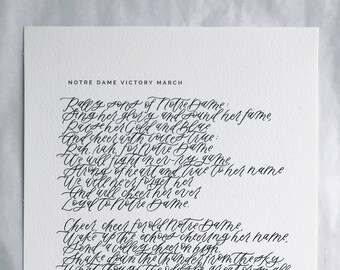 NOTRE DAME VICTORY MARCH
Rally sons of Notre Dame;
Sing her glory and sound her fame,
Raise her Gold and Blue
And cheer with voices true:
Rah, rah, for Notre Dame
We will fight in ev-ry game,
Strong of heart and true to her name
We will ne'er forget her
And will cheer her ever
Loyal to Notre Dame.
Cheer, cheer for old Notre Dame,
Wake up the echoes cheering her name,
Send a volley cheer on high,
Shake down the thunder from the sky.